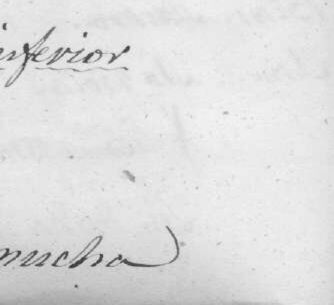 inferior
mucha